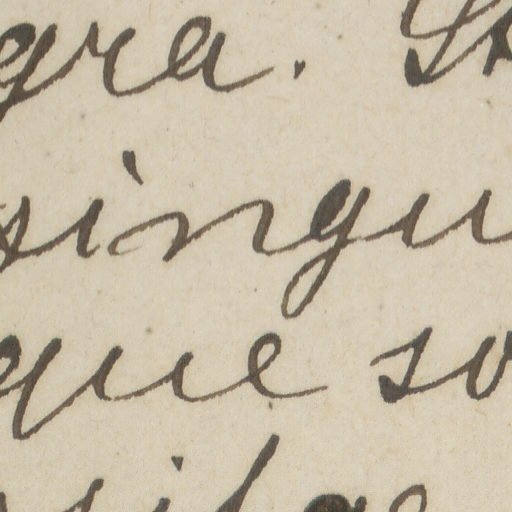 gra.
singu
que so